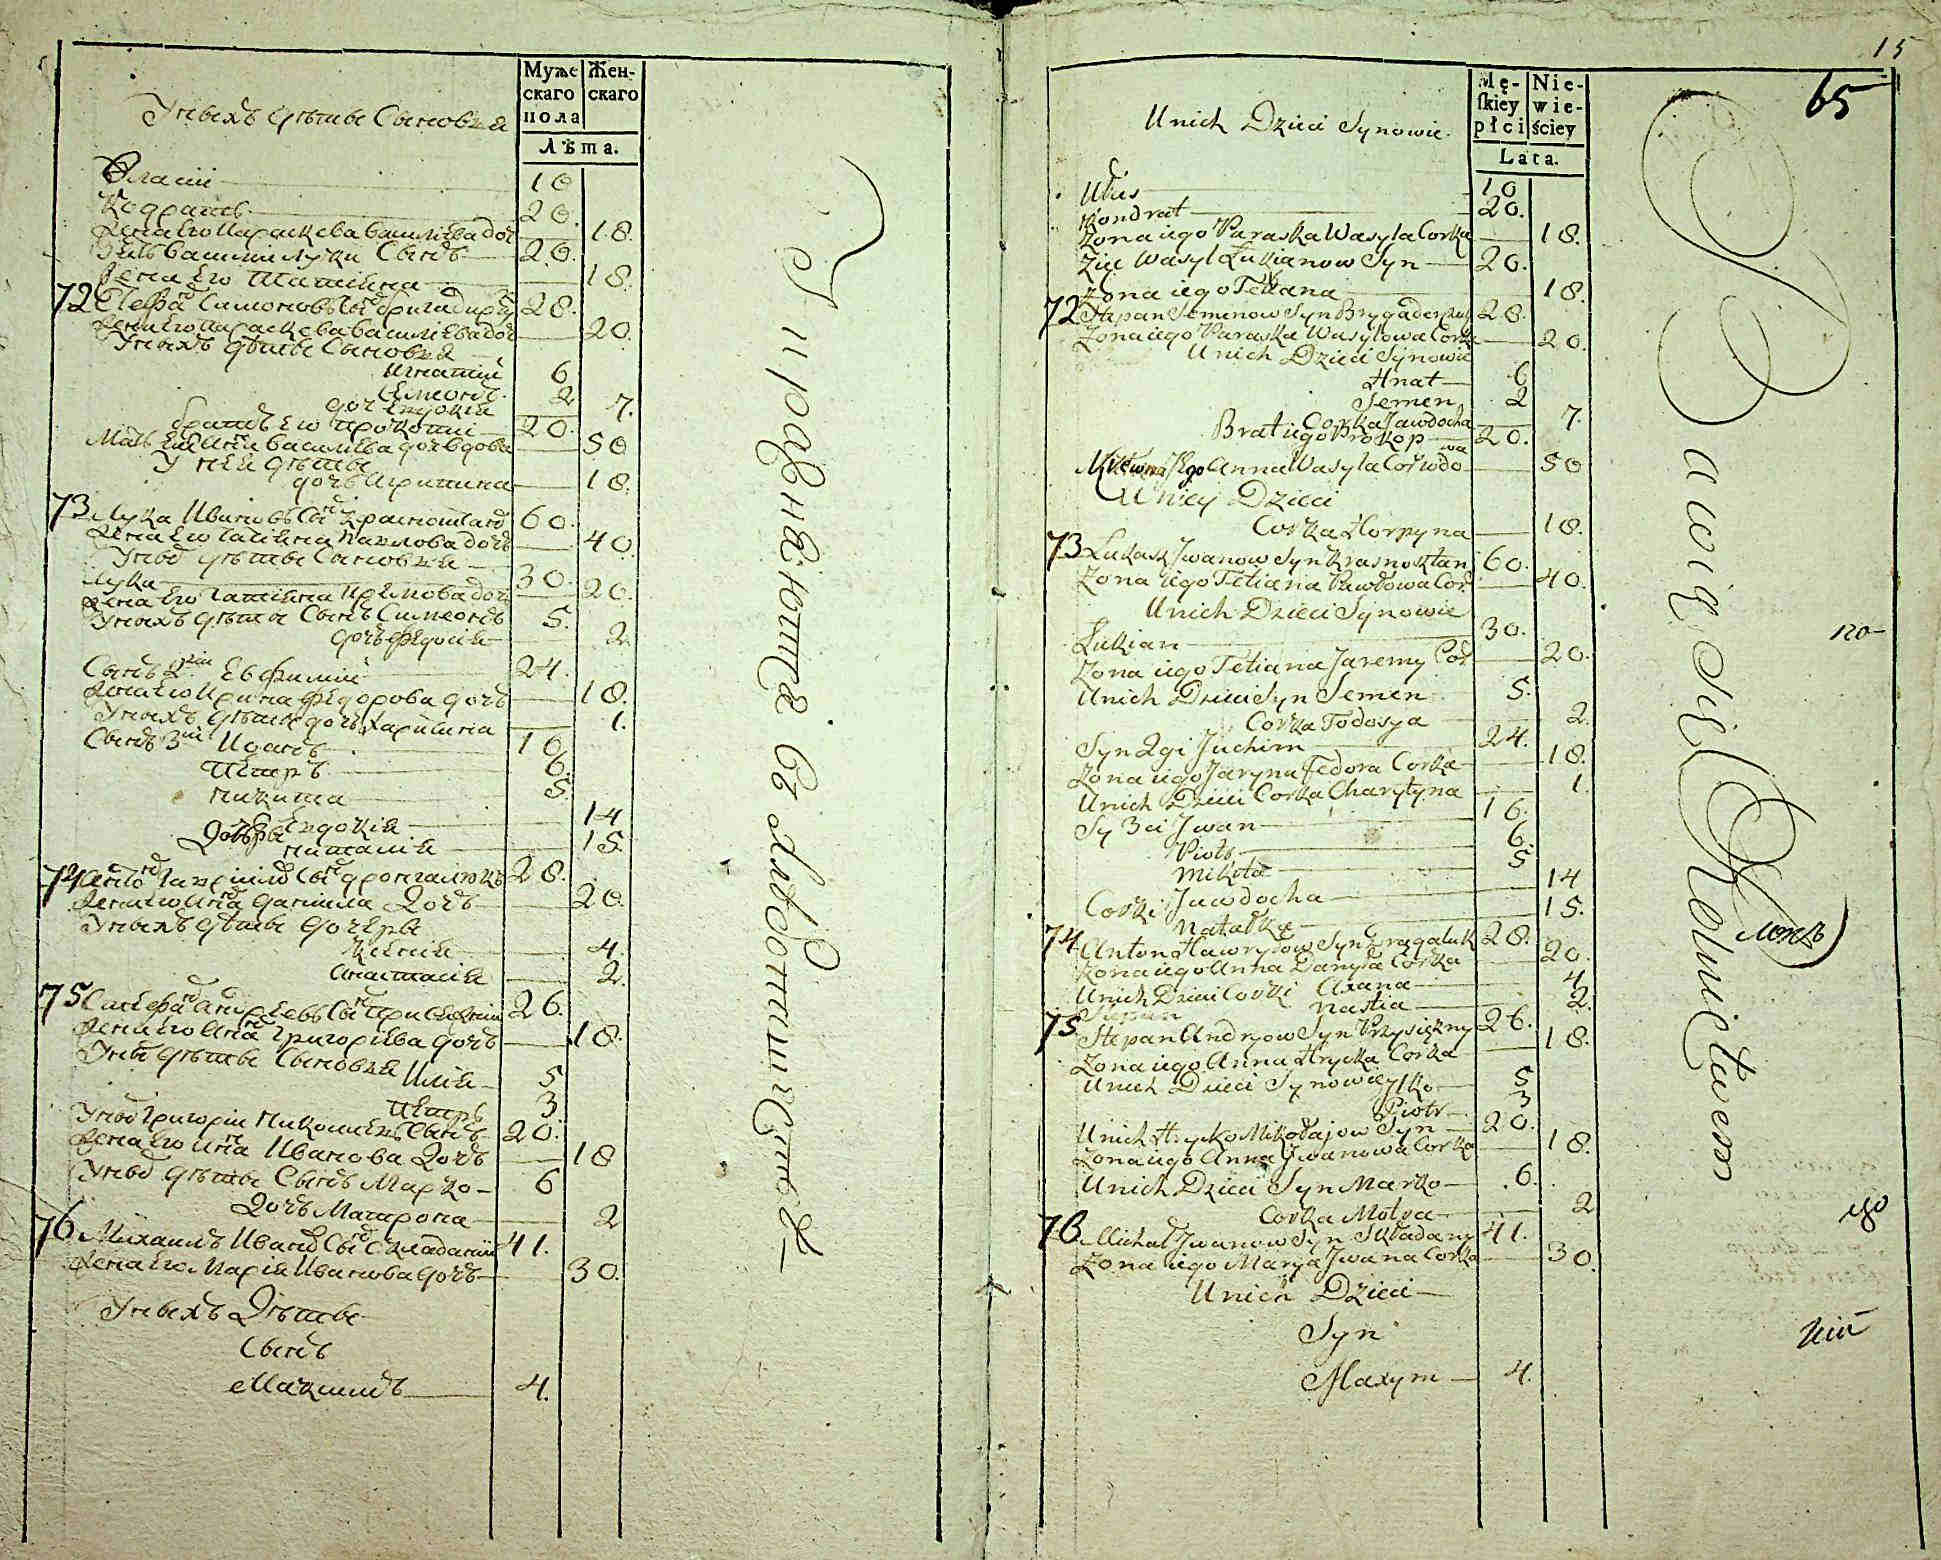 Муже
скаго
пола
Жен-
скаго
Лѣта.
У ныхъ дѣтье Сыновья
Власій 10
Кодратъ 20
Жена Его Параскева Василіева доч 18.
Зять Василій Луки Сынъ 20.
Жена Его Татіяна 18.
72 Стефанъ Симоновъ Сынъ 28.
Жена Его Параскева Василіева доч 20.
У ныхъ дѣтье Сыновья
Игнатій 6
Симеонъ 2
доч Евдокія 7.
братъ Его Прокопій 20.
Мать Его Анна Василіева дочь вдова 50
У неи дѣтье
дочь Агрипина 18.
73 Лука Ивановъ Сынъ 60.
Жена Его Татіяна Павлова дочь 40.
У ныхъ дѣтье Сыновья
Лука 30.
Жена Его Татіяна дочь 20.
У ныхъ дѣтье Сынъ Симеонъ 5.
дочь Федосия 2
Сынъ 2й Евфимій 24.
Жена Его Ирина Федорова дочь 18.
У ныхъ дѣтье дочь Харитина 1.
Сынъ 3й Иванъ 16
Петръ 6.
Никита 5.
Дочерѣ Евдокія 14
Наталія 15
74 Антонъ Гавриловъ Сынъ 28.
Жена Его Анна Даниила Дочь 20.
У ныхъ дѣтье дочерѣ
Ксенія 4.
Анастасія 2.
75 Стефанъ Андреевъ Сынъ 26.
Жена Его Анна Григоріева дочь 18.
У ныхъ дѣтье Сыновья Илія 5
Петръ 3
У ныхъ Григорій Николаевъ Сынъ 20.
Жена Его Анна Иванова Дочь 18
У ныхъ дѣтье Сынъ Марко 6
Дочь Матрона 2
76 Михаилъ Ивановъ Сынъ Складаный 41.
Жена Его Марія Иванова дочь 30.
У ныхъ Дѣтье
Сынъ
Максимъ 4.
Упражняются въ
15
65
Mę-
skiey
płci
Nie-
wie-
ściey
Lata.
Unich Dzieci Synowie.
Ułas 10
Kondrat 20.
Zona iego Paraska Wasyla Corka 18.
Zięć Wasyl Łukianow Syn 20.
Zona iego Tetiana 18.
72 Stepan Semenow Syn 28.
Zona iego Paraska Wasylowa Corka 20.
Unich Dzieci Synowie
Hnat 6
Semen 2
Corka Jawdocha 7.
Brat iego Prokop 20.
Anna Wasyla Cor wdowa 50
U niey Dzieci
Corka Horpyna 18.
73 Łukasz Jwanow Syn Krasnosztan 60.
Zona iego Tetiana Pawłowa Cor. 40.
Unich Dzieci Synowie
Łukian 30.
Zona iego Tetiana Jaremy Cor 20.
Unich Dzieci Syn Semen 5.
Corka Todosya 2.
Syn 2gi Juchim 24.
Zona iego Jaryna Fedora Corka 18.
Unich Dzieci Corka Charytyna 1.
Sy 3ci Jwan 16.
Piotr 6.
Mikita 5
Corki Jawdocha 14
Natalka 15.
74 Anton Hawryłow Syn Dragaluk 28.
Zona iego Anna Danyła Corka 20.
Unich Dzieci Corki Axana 4
Nastia 2.
75 Stepan Andryow Syn Przysiężny 26.
Zona iego Anna Hrycka Corka 18.
Unich Dzieci Synowie Jlko 5
Piotr 3
Unich Hrycko Mikołajow Syn 20.
Zona iego Anna Jwanowa Corka 18.
Unich Dzieci Syn Marko 6.
Corka Motra 2
76 Michał Jwanow Syn Składany 41.
Zona iego Marya Jwana Corka 30.
Unich Dzieci
Syn
Maxym 4.
Bawią się Rolnictwem